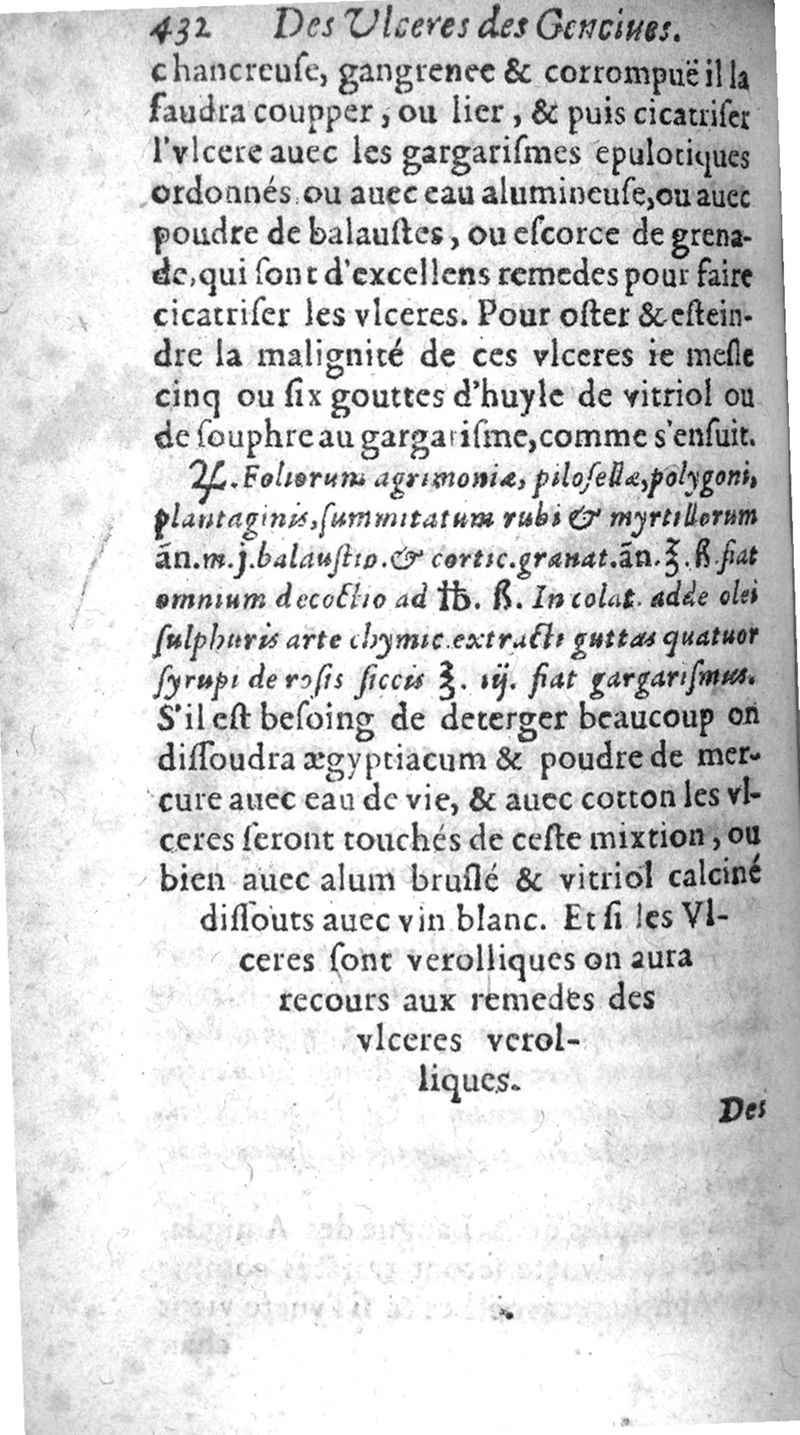 432 Des Vlceres des Genciues.
chancreuſe, gangrenee & corrompuë il la
faudra coupper, ou lier, & puis cicatriſer
l'vlcere auec les gargariſmes epulotiques
ordonnés ou auec eau alumineuſe, ou auec
poudre de balauſtes, ou eſcorce de grena-
de, qui ſont d'excellens remedes pour faire
cicatriſer les vlceres. Pour oſter & eſtein-
dre la malignité de ces vlceres ie meſle
cinq ou ſix gouttes d'huyle de vitriol ou
de ſouphre au gargariſme, comme s'enſuit.
♃. Foliorum agrimoniæ, piloſellæ, polygoni,
plantaginis, ſummitatum rubi & myrtillorum
ān. m. j. balauſtio. & cortic. granat. ān. ℥. ß. fiat
omnium decoctio ad ℔. ß. In colat. adde olei
ſulphuris arte chymic. extracti guttas quatuor
ſyrupi de roſis ſiccis ℥. ij. fiat gargariſmus.
S'il eſt beſoing de deterger beaucoup on
diſſoudra ægyptiacum & poudre de mer-
cure auec eau de vie, & auec cotton les vl-
ceres ſeront touchés de ceſte mixtion, ou
bien auec alum bruſlé & vitriol calciné
diſſouts auec vin blanc. Et ſi les Vl-
ceres ſont verolliques on aura
recours aux remedes des
vlceres verol-
liques.
Des